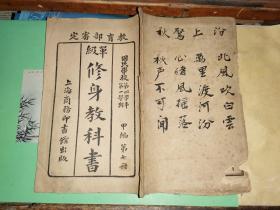 教育部審定
單級
修身教科書
國民學校
甲編 第七冊
上海商務印書館出版
汾上驚秋
北風吹白雲
萬里渡河汾
心緒搖落
秋不可聞